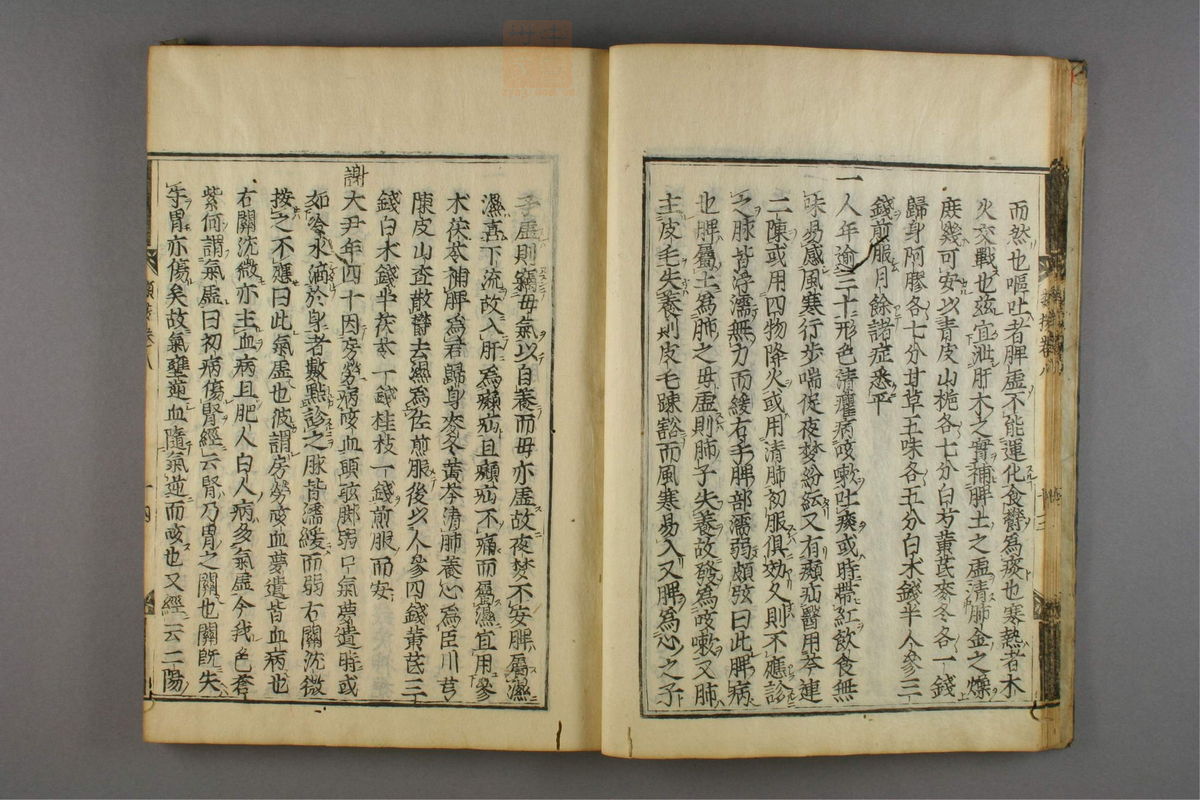 而然也嘔吐者脾虛不能運化食鬱為痰也寒熱者木
火交戰也茲宜泄肝木之實補脾土之虛清肺金之燥
庶幾可安以青皮山梔各七分白芍黃芪麥冬各一錢
歸身阿膠各七分甘草五味各五分白术錢半人參三
錢煎服月餘諸症悉平
一人年逾三十形色清癯病咳嗽吐痰或時帶紅飲食無
味易感風寒行步喘促夜夢紛紜又有癩疝醫用芩連
二陳或用四物降火或用清肺初服俱効久則不應診
之脉皆浮濡無力而緩右手脾部濡弱頗弦曰此脾病
也脾屬土為肺之母虛則肺子失養故發為咳嗽又肺
主皮毛失養則皮毛踈豁而風寒易入又脾為心之子
子虛則竊母氣以自養而母亦虛故夜梦不安脾屬濕
濕喜下流故入肝為癩疝且癩疝不痛而屬濕宜用參
术茯苓補脾為君歸身麥冬黃芩清肺養心為臣川芎
陳皮山查散鬱去濕為佐煎服後以人參四錢黃芪三
錢白术錢半茯苓一錢桂枝一錢煎服而安
謝大尹年四十因房勞病咳血頭眩脚弱口氣夢遺時或
如冷水滴於身者數點診之脉皆濡緩而弱右關沈微
按之不應曰此氣虛也彼謂房勞咳血夢遺皆血病也
右關沈微亦主血病且肥人白人病多氣虛今我色蒼
紫何謂氣虛曰初病傷腎經云腎乃胃之關也關旣失
守胃亦傷矣故氣壅逆血隨氣逆而咳也又經云二陽